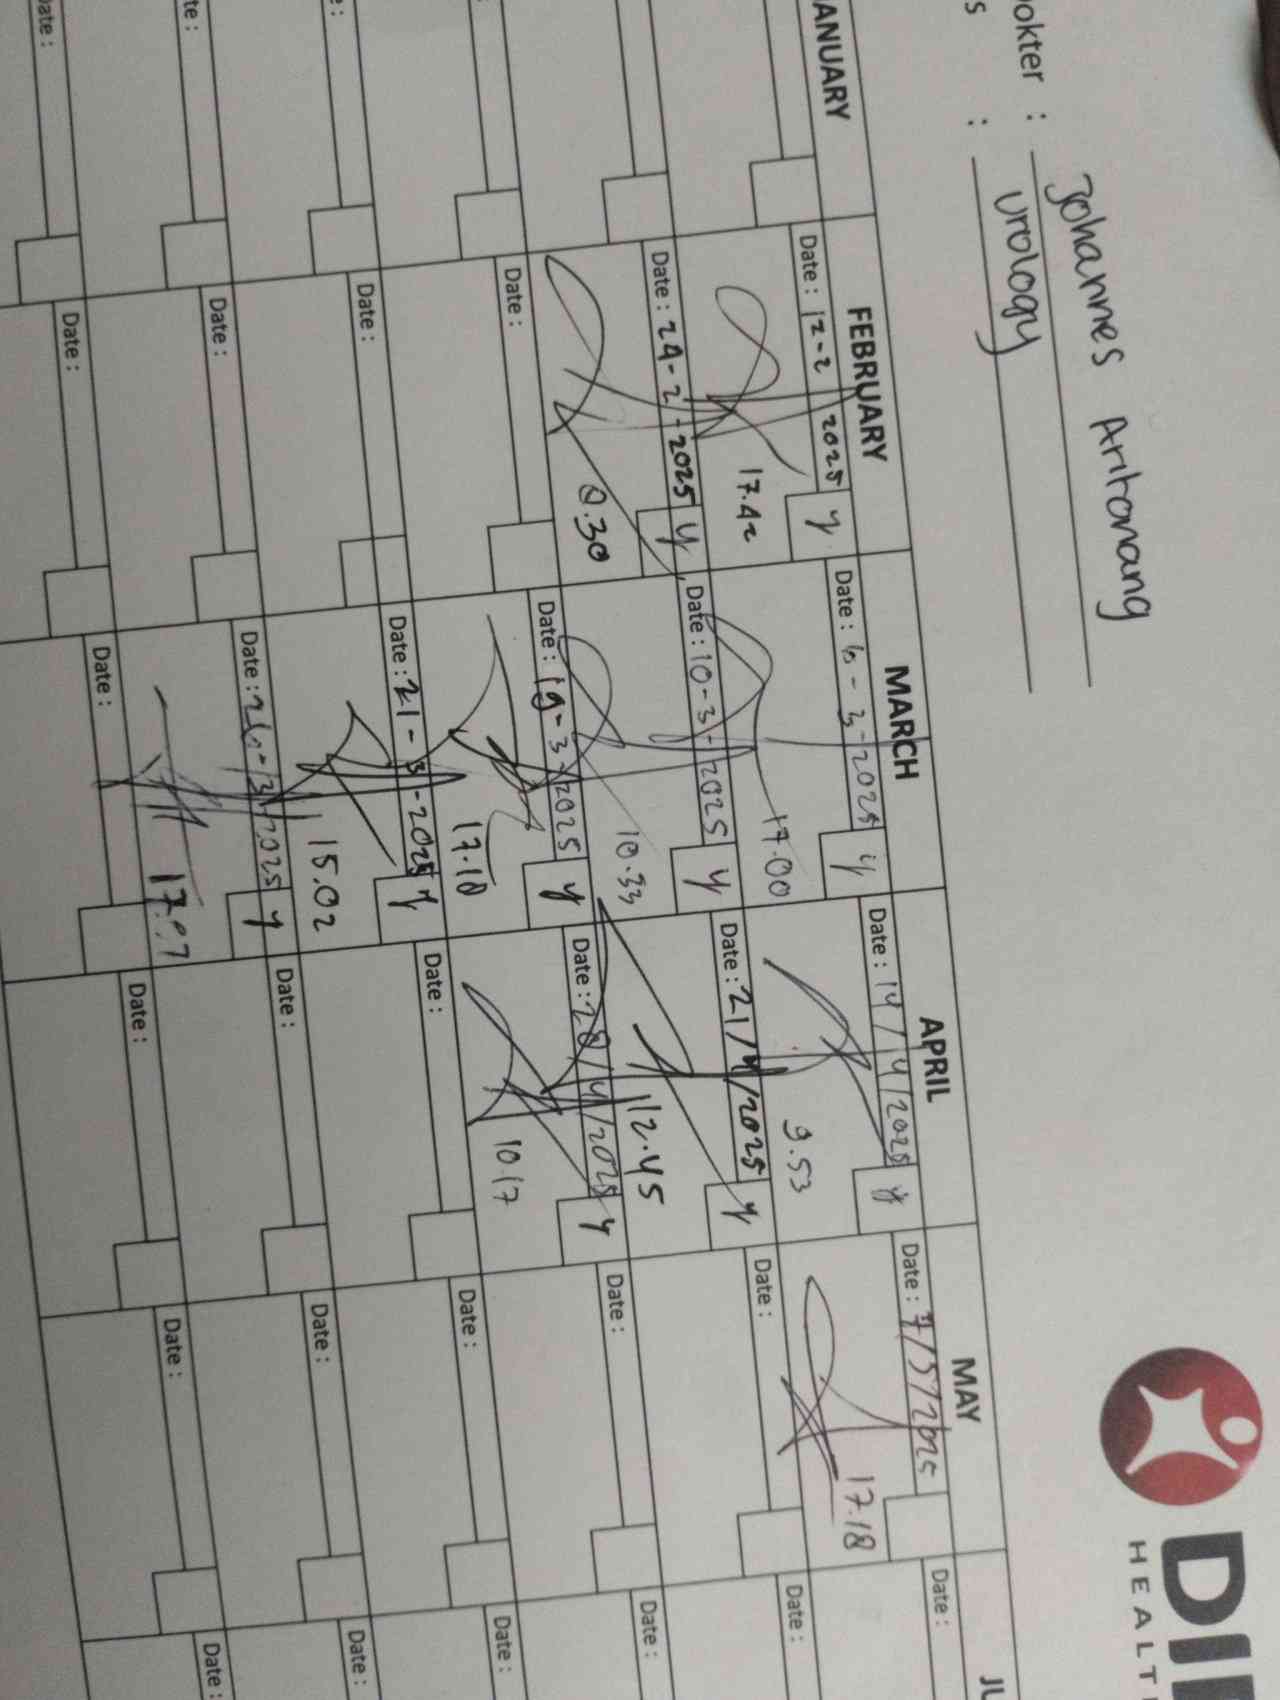 DI
HEALT
okter : Johannes Aritonang
s : Urology
ANUARY FEBRUARY MARCH APRIL MAY JU
Date : 12-2 2025 y
17.42
Date : 6-3-2025 y
17.00
Date : 14/4/2025 y
9.53
Date : 7/5/2025
17.18
Date :
Date : 24-2-2025 y
Date : 10-3-2025 y
10.33
Date : 21/4/2025 y
12.45
Date :
Date :
Date :
Date : 19-3-2025 y
17.18
Date : 28/4/2025 y
10.17
Date :
Date :
e :
Date :
Date : 21-3-2025 y
15.02
Date :
Date :
Date :
te :
Date :
Date : 26-3-2025 y
Date :
Date :
Date :
ate :
Date :
Date :
Date :
Date :
Date :